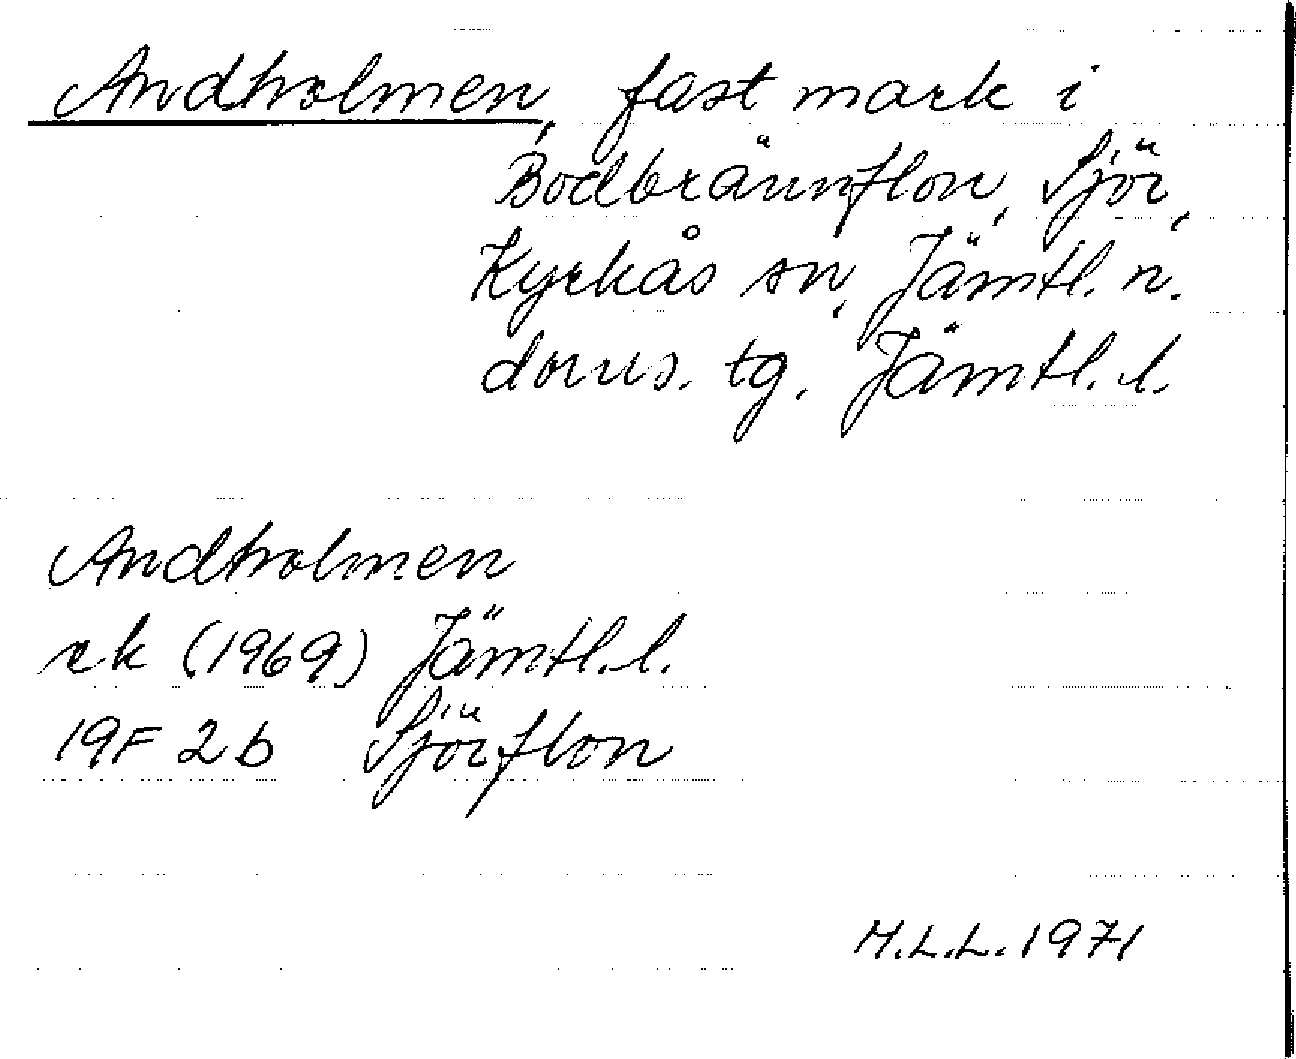 Andholmen, fast mark i
Bodbrännflon, Sjör,
Kyrkås sn, Jämtl. n.
doms. tg. Jämtl. l.
Andholmen
rk (1969) Jämtl. l.
19F 2b Sjörflon
M.L.L. 1971